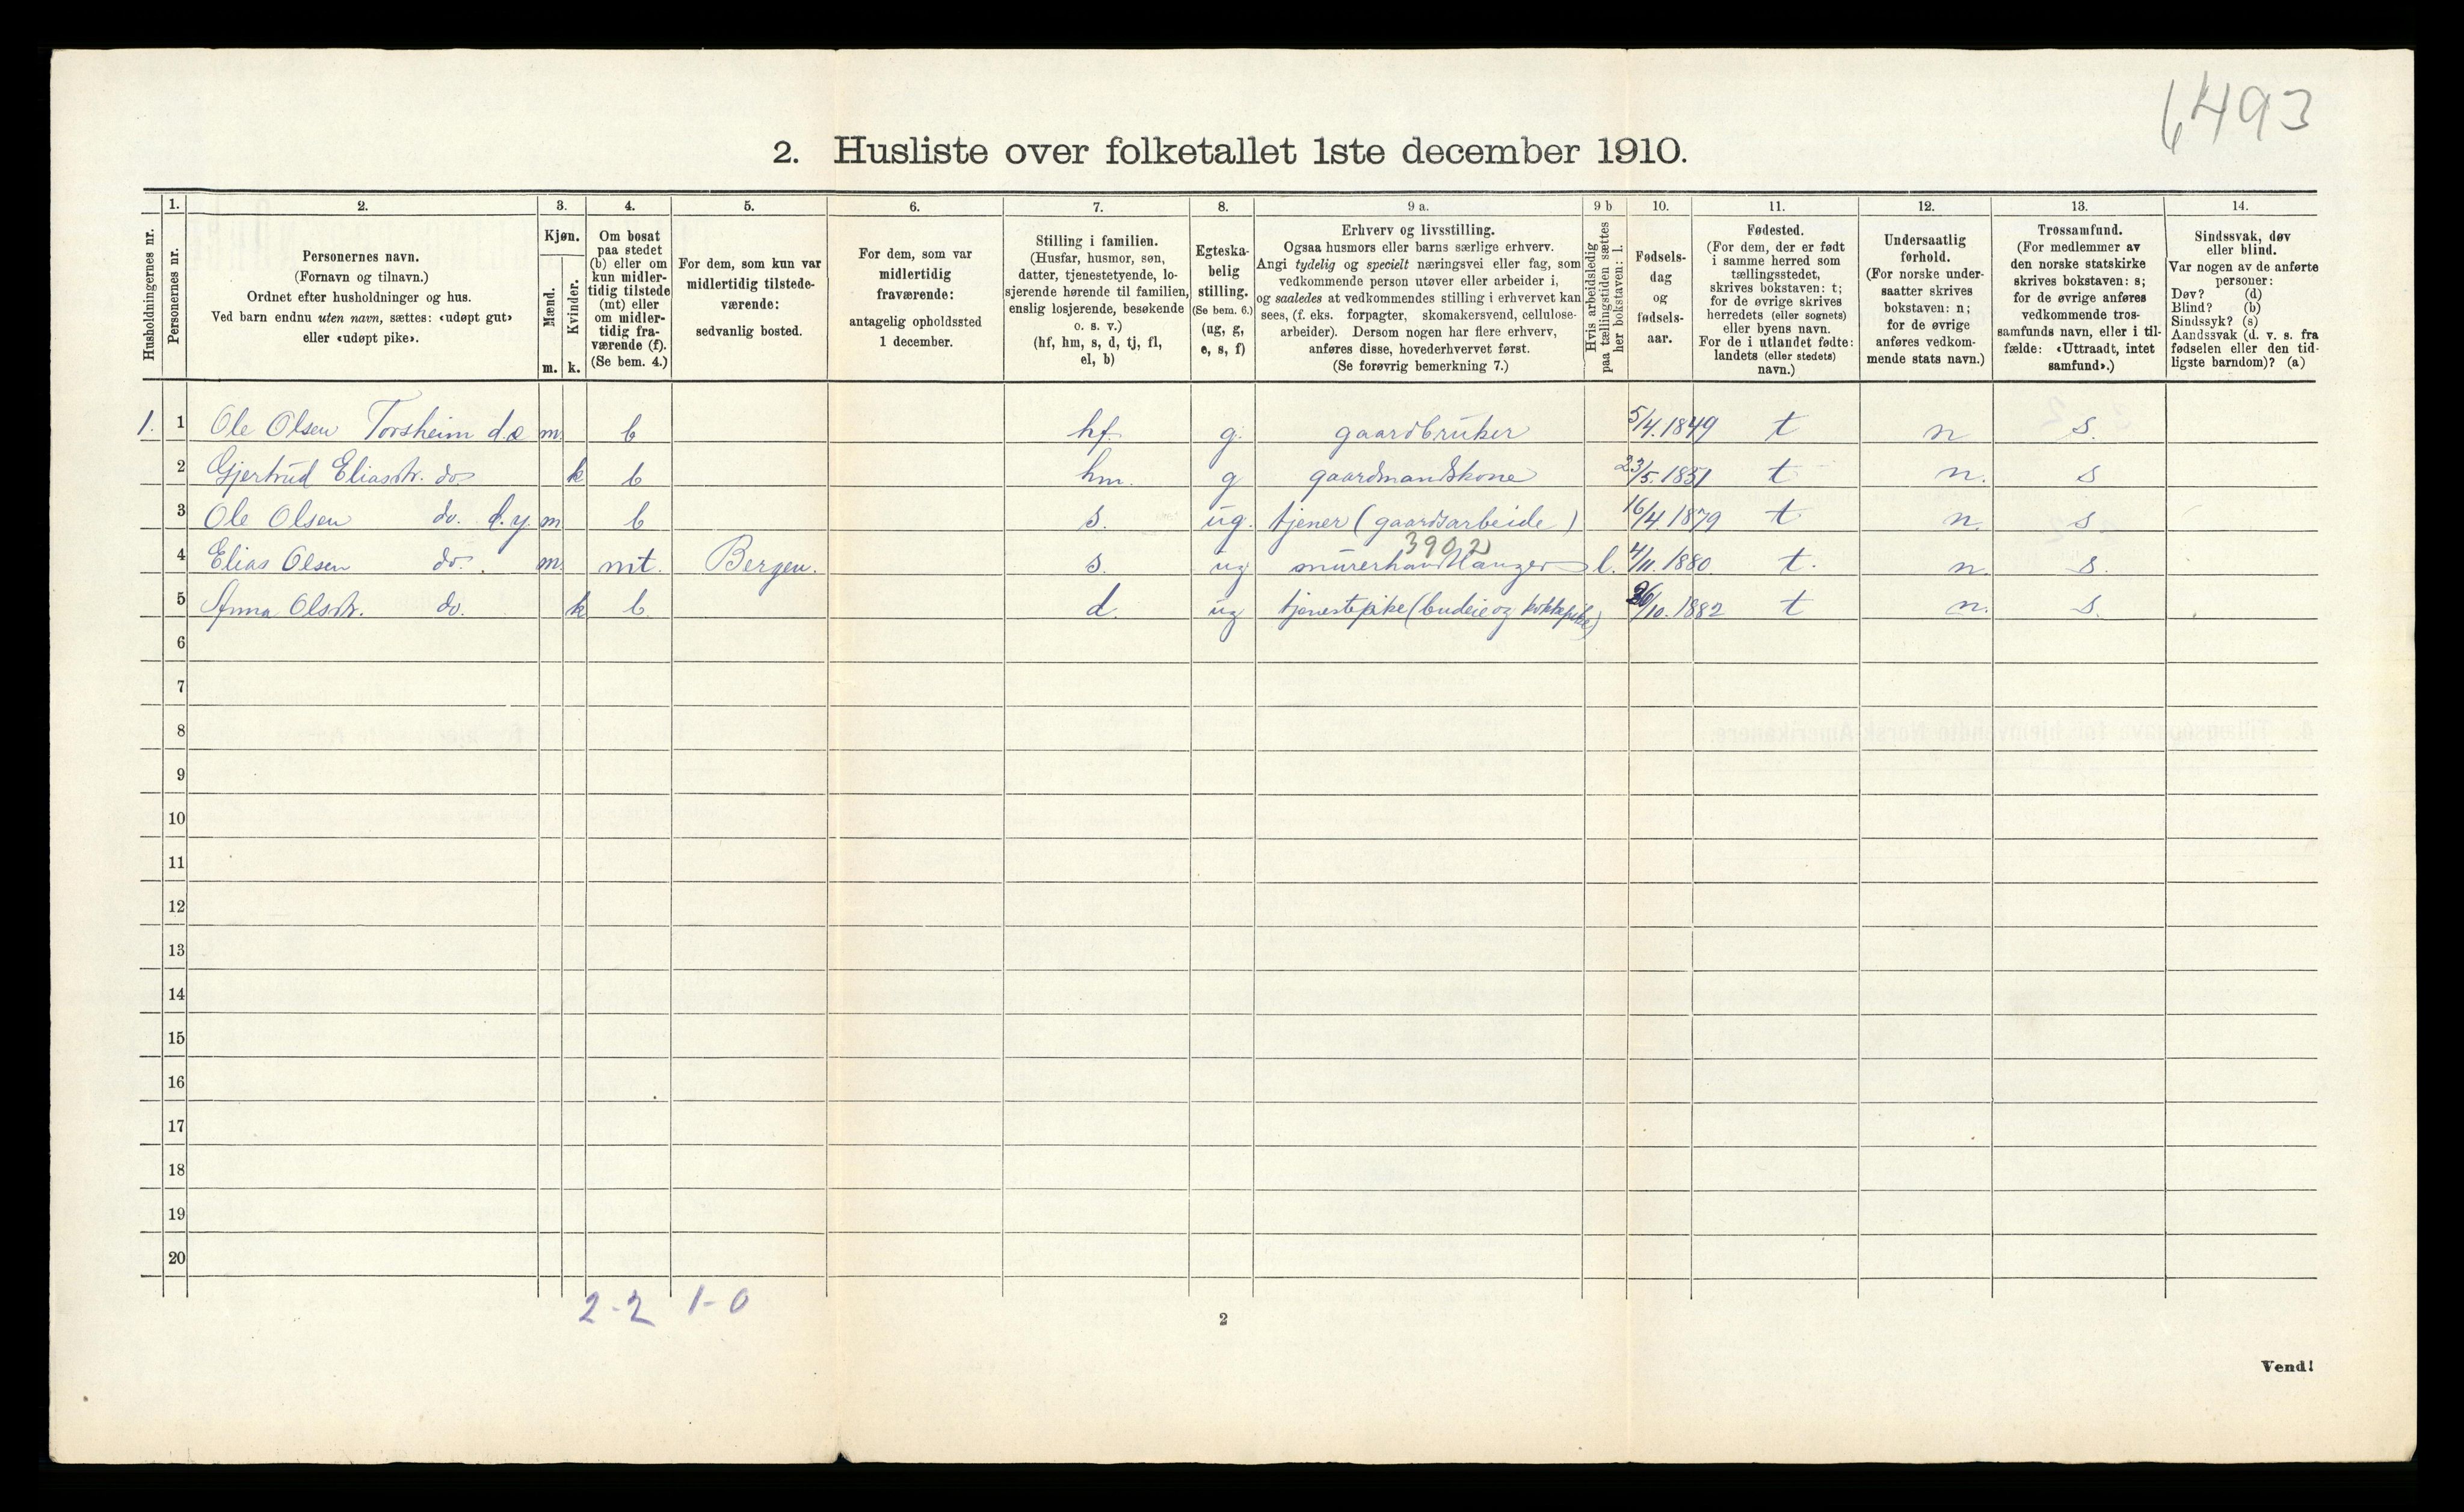 6493
2. Husliste over folketallet 1ste december 1910.
Husholdningernes nr.
1.
Personernes nr.
2.
Personernes navn.
(Fornavn og tilnavn.)
Ordnet efter husholdninger og hus.
Ved barn endnu uten navn, sættes: «udøpt gut»
eller «udøpt pike».
3.
Kjøn.
Mænd.
Kvinder.
m. k.
4.
Om bosat
paa stedet
(b) eller om
kun midler-
tidig tilstede
(mt) eller
om midler-
tidig fra-
værende (f).
(Se bem. 4.)
5.
For dem, som kun var
midlertidig tilstede-
værende:
sedvanlig bosted.
6.
For dem, som var
midlertidig
fraværende:
antagelig opholdssted
1 december.
7.
Stilling i familien.
(Husfar, husmor, søn,
datter, tjenestetyende, lo-
sjerende hørende til familien,
enslig losjerende, besøkende
o. s. v.)
(hf, hm, s, d, tj, fl,
el, b)
8.
Egteska-
belig
stilling.
(Se bem. 6.)
(ug, g,
e, s, f)
9 a.
Erhverv og livsstilling.
Ogsaa husmors eller barns særlige erhverv.
Angi tydelig og specielt næringsvei eller fag, som
vedkommende person utøver eller arbeider i,
og saaledes at vedkommendes stilling i erhvervet kan
sees, (f. eks. forpagter, skomakersvend, cellulose-
arbeider). Dersom nogen har flere erhverv,
anføres disse, hovederhvervet først.
(Se forøvrig bemerkning 7.)
9 b
Hvis arbeidsledig
paa tællingstiden sættes
her bokstaven: l.
10.
Fødsels-
dag
og
fødsels-
aar.
11.
Fødested.
(For dem, der er født
i samme herred som
tællingsstedet,
skrives bokstaven: t;
for de øvrige skrives
herredets (eller sognets)
eller byens navn.
For de i utlandet fødte:
landets (eller stedets)
navn.)
12.
Undersaatlig
forhold.
(For norske under-
saatter skrives
bokstaven: n;
for de øvrige
anføres vedkom-
mende stats navn.)
13.
Trossamfund.
(For medlemmer av
den norske statskirke
skrives bokstaven: s;
for de øvrige anføres
vedkommende tros-
samfunds navn, eller i til-
fælde: «Uttraadt, intet
samfund».)
14.
Sindssvak, døv
eller blind.
Var nogen av de anførte
personer:
Døv? (d)
Blind? (b)
Sindssyk? (s)
Aandssvak (d. v. s. fra
fødselen eller den tid-
ligste barndom)? (a)
1. 1 Ole Olsen Torsheim d.æ m. b hf. g. gaardbruker 5/4. 1849 t n s.
2 Gjertrud Eliasdtr. do k b hm. g gaardmandskone 23/5. 1851 t n. s
3 Ole Olsen do. d.y. m b s. ug. tjener (gaardsarbeide) 16/4. 1879 t n. s
3902
4 Elias Olsen do. m. mt. Bergen. s. ug murerhandlanger l. 4/11. 1880. t. n. s.
5 Anna Olsdtr. do. k b d. ug tjenestepike (budeie og kokkepike) /10. 1882 t n. s.
6
7
8
9
10
11
12
13
14
15
16
17
18
19
20
2-2 1-0
2
Vend!